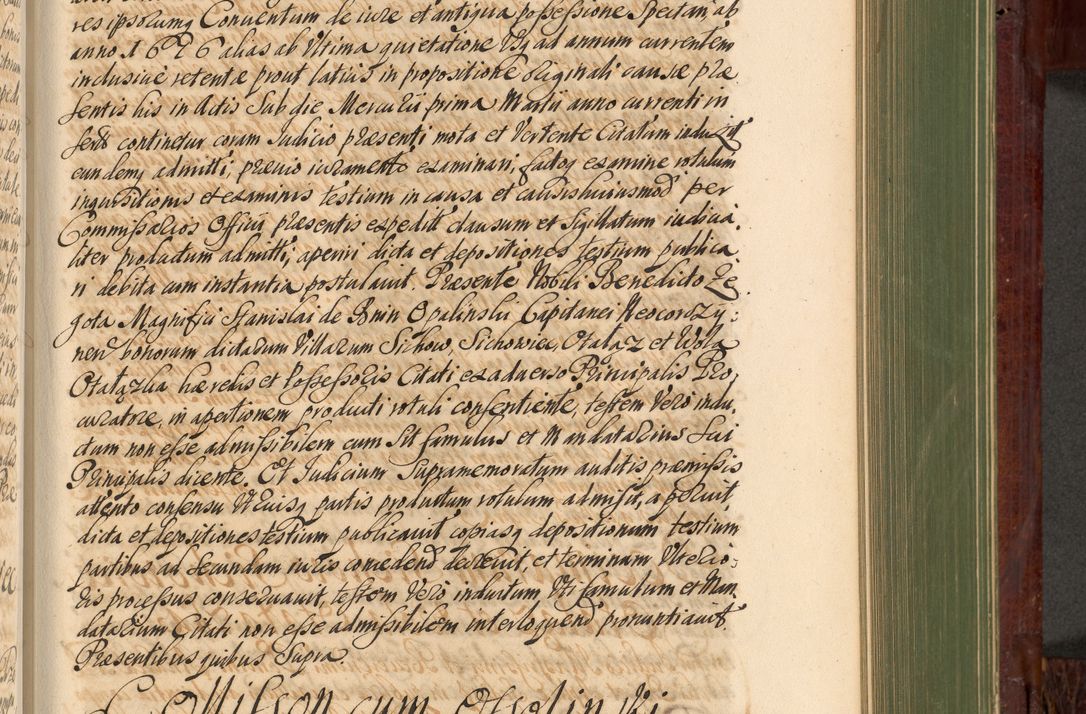 res ipsorumq Conventum de iure et antiqua possessione Spectan ab
anno 1676 alias ab Ultima quietatione Usq ad annum currentem
inclusive retentæ prout latius in propositione originali causæ præ
sentis his in Actis Sub die Mercurii prima Martii anno currenti in
sert continetur coram Iudicio præsenti mota et Vertente Citatam induxit
eundemq admitti, prævio iuramento examinari, factoq examine rotulum
inquisitionis et examinis testium in causa et causis huiusmodi per
Commissarios Officii præsentis expedit clausum et Sigillatum iudicia
liter productum admitti, aperiri dicta et depositiones testium publica
ri debita cum instantia postulavit. Præsente Nobili Benedicto Ze
gota Magnifici Stanislai de Bnin Opalinski Capitanei Neocorczy:
nen bonorum dictarum Villarum Sichow, Sichowiec, Otalaz et Wola
Otalązka hæredis et Possessoris Citati ex adverso Principalis Pro
curatore, in apertionem producti rotuli consentiente, testem Vero indu,
ctum non esse admissibilem cum Sit famulus et Mandatarius Sui
Principalis dicente. Et Iudicium Supramemoratum auditis præmissis
attento consensu Utriusq partis productum rotulum admisit, aperuit,
dicta et depositiones testium publicavit copiasq depositionum testium
partibus ad Secundam iuris concedend decrevit, et terminum Ulterio:
ris processus conservavit, testem Vero inductum Uti famulum et Man
datarium Citati non esse admissibilem interloquend pronuntiavit.
Præsentibus quibus Supra.
cum Ossolinski